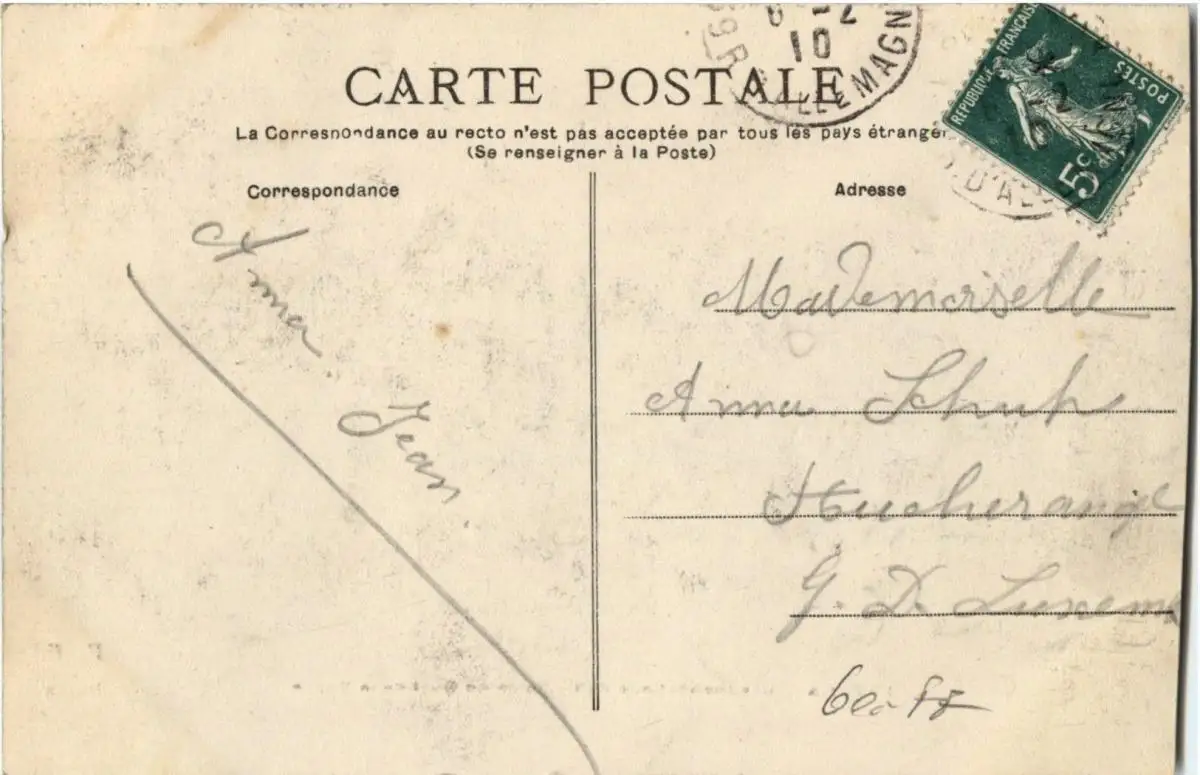 6-12
10
D'ALLEMAGN
RÉPUBLIQUE FRANÇAISE
POSTES
5c
D'AL
CARTE POSTALE
La Correspondance au recto n'est pas acceptée par tous les pays étranger
(Se renseigner à la Poste)
Correspondance
Anna
Jean.
Adresse
Mademoiselle
Anna Schuh
Hucherange
G. D. Luxem